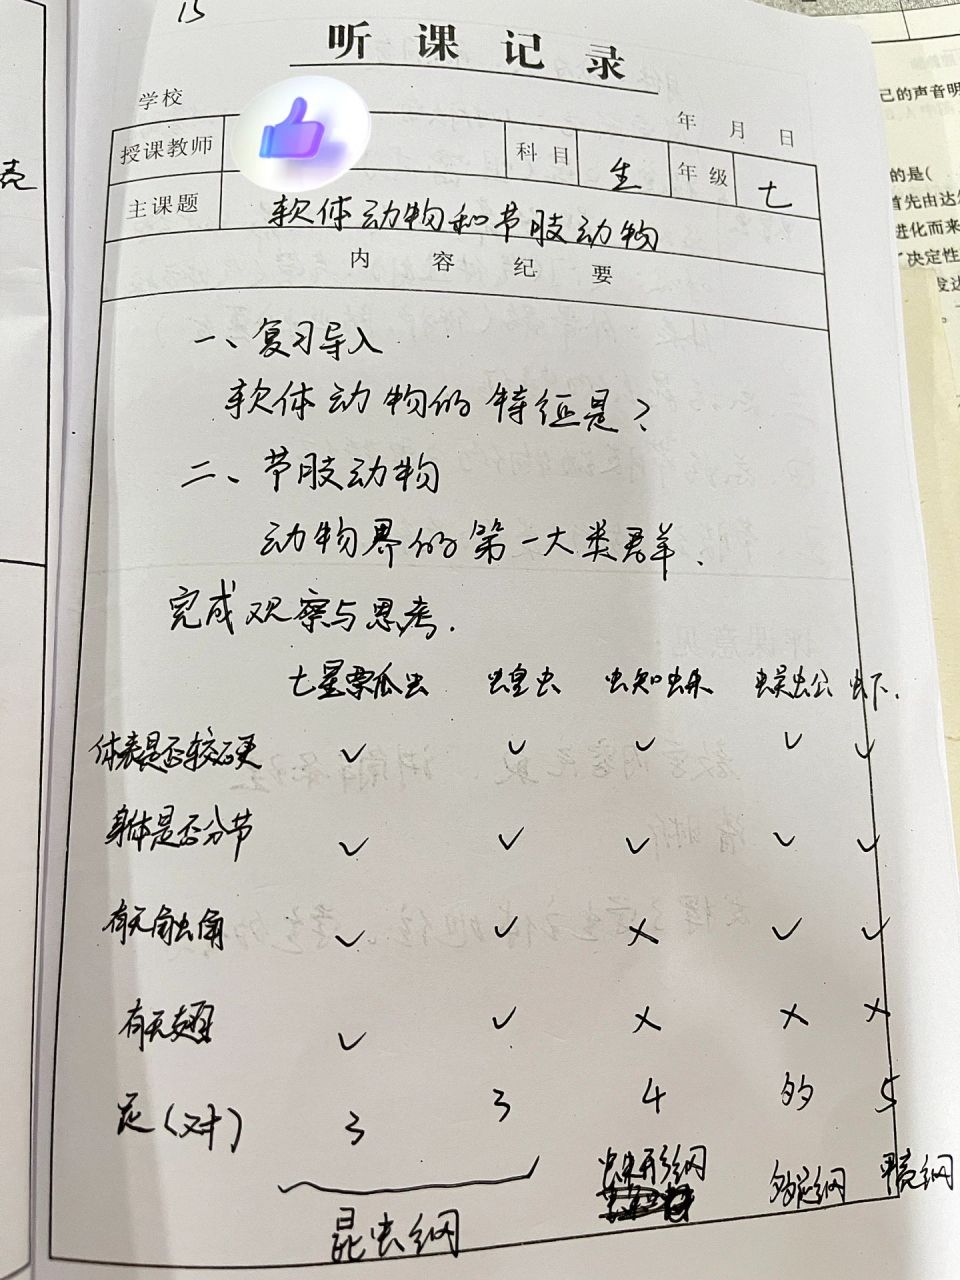 15
听课记录
学校 年 月 日
授课教师 科目 生 年级 七
主课题 软体动物和节肢动物
内容纪要
一、复习导入
软体动物的特征是？
二、节肢动物
动物界的第一大类群.
完成观察与思考.
七星票瓜虫 蝗虫 蜘蛛 蜈蚣 虾.
体表是否较硬 ✓ ✓ ✓ ✓ ✓
身体是否分节 ✓ ✓ ✓ ✓ ✓
有无触角 ✓ ✓ × ✓ ✓
有无翅 ✓ ✓ × × ×
足（对） 3 3 4 多 5
昆虫纲 蛛形纲 多足纲 甲壳纲
壳
己的声音明
的是(
首先由达尔
进化而来
了决定性
发达